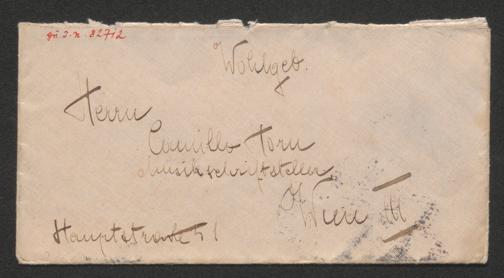 zu I.N. 82712
Wohlgeb.
Herrn
Camillo Horn
Musikschriftsteller
Wien III
Hauptstrasse 51